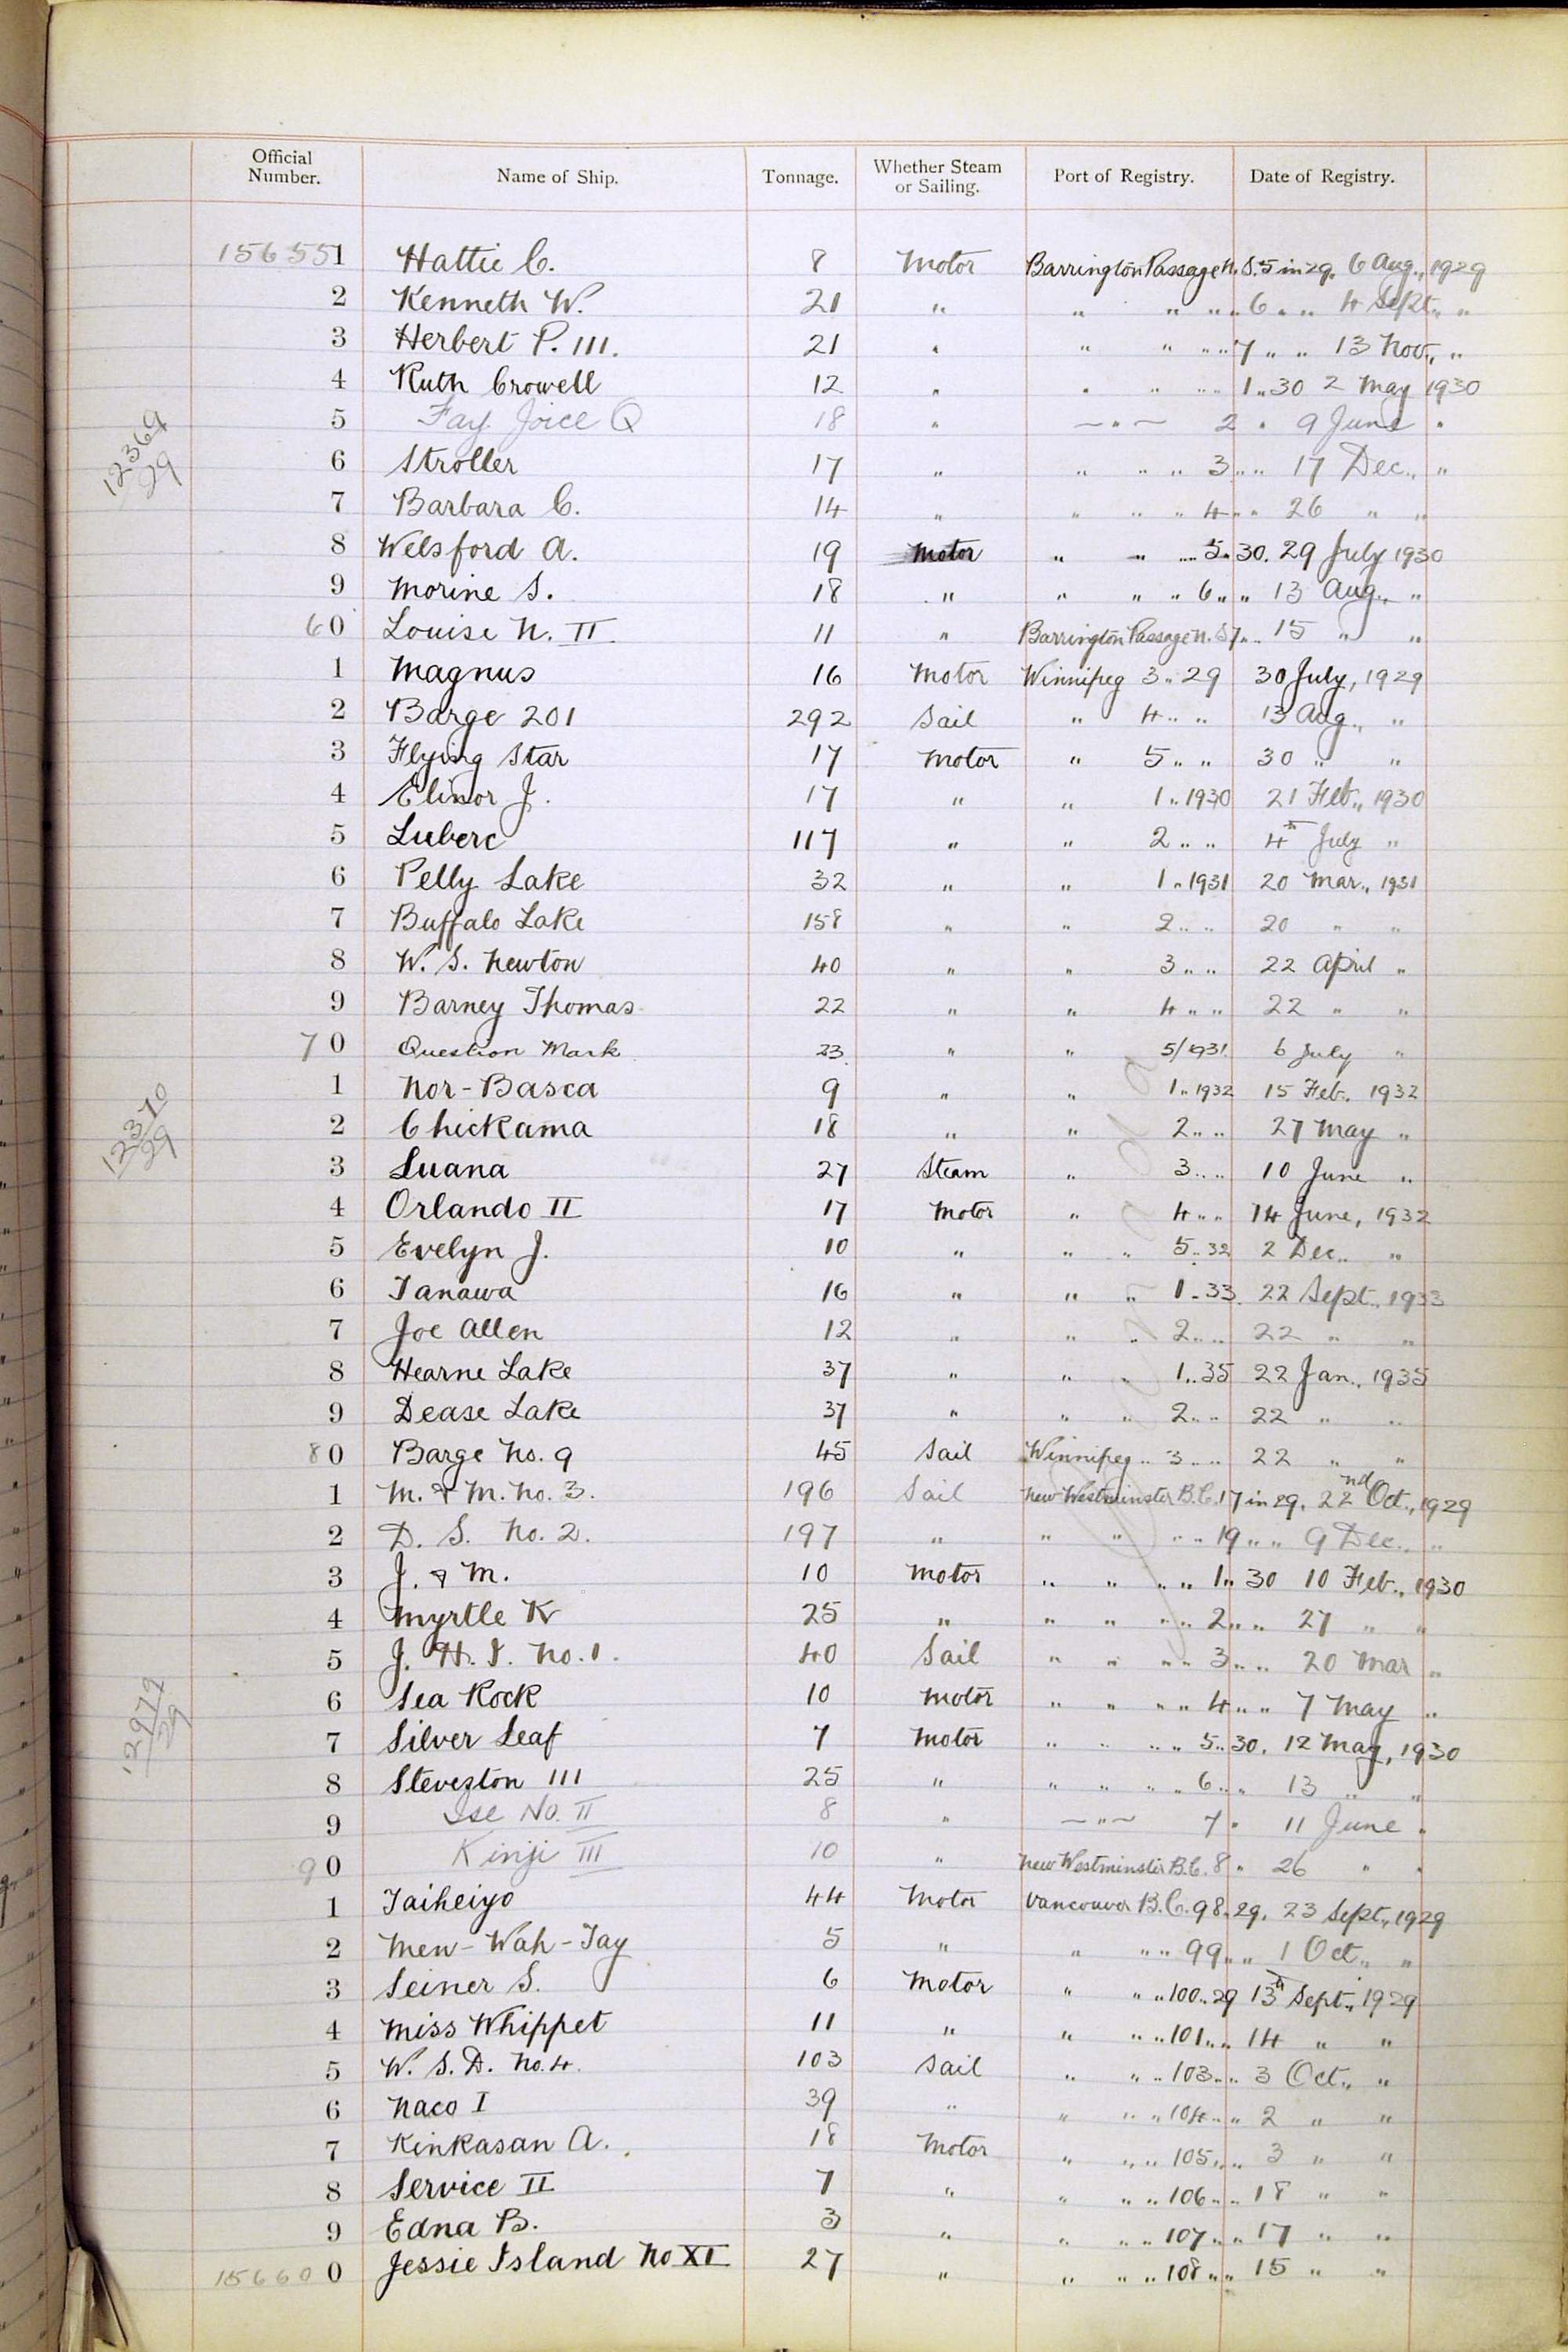 Official Number. Name of Ship. Tonnage. Whether Steam or Sailing. Port of Registry. Date of Registry.
156551 Hattie C. 8 Motor Barrington Passage N.S. 5 in 29. 6 Aug., 1929
2 Kenneth W. 21 " " " " " 6 " " 4 Sept., "
3 Herbert P. III. 21 " " " " " 7 " " 13 Nov., "
4 Ruth Crowell 12 " " " " " 1 " 30 2 May 1930
12369/29
5 Fay Joice Q 18 " — " — 2 " 9 June "
6 Stroller 17 " " " " 3 " " 17 Dec., "
7 Barbara C. 14 " " " " 4 " " 26 " "
8 Welsford A. 19 Motor " " " " 5 " 30. 29 July 1930
9 Morine S. 18 " " " " 6 " " 13 Aug., "
60 Louise N. II 11 " Barrington Passage N.S. 7 " " 15 " "
1 Magnus 16 Motor Winnipeg 3 " 29 30 July, 1929
2 Barge 201 292 Sail " 4 " " 13 Aug., "
3 Flying Star 17 Motor " 5 " " 30 " "
4 Elinor J. 17 " " 1 " 1930 21 Feb., 1930
5 Luberc 117 " " 2 " " 4th July "
6 Pelly Lake 32 " " 1 " 1931 20 Mar., 1931
7 Buffalo Lake 158 " " 2 " " 20 " "
8 W. S. Newton 40 " " 3 " " 22 April "
9 Barney Thomas 22 " " 4 " " 22 " "
70 Question Mark 23 " " 5/1931 6 July "
12370/29
1 Nor-Basca 9 " " 1 " 1932 15 Feb. 1932
2 Chickama 18 " " 2 " " 27 May "
3 Luana 27 Steam " 3 " " 10 June "
4 Orlando II 17 Motor " 4 " " 14 June, 1932
5 Evelyn J. 10 " " " 5 " 32 2 Dec., "
6 Tanawa 16 " " " 1 " 33. 22 Sept., 1933
7 Joe Allen 12 " " " 2 " " 22 " "
8 Hearne Lake 37 " " " 1 " 35 22 Jan., 1935
9 Dease Lake 37 " " " 2 " " 22 " "
80 Barge No. 9 45 Sail Winnipeg " 3 " " 22 " "
1 M. & M. No. 3. 196 Sail New Westminster B.C. 17 in 29. 22nd Oct., 1929
2 D. S. No. 2. 197 " " " " " 19 " " 9 Dec., "
3 J. & M. 10 Motor " " " " 1 " 30 10 Feb., 1930
4 Myrtle K 25 " " " " " 2 " " 27 " "
5 J. H. I. No. 1. 40 Sail " " " " 3 " " 20 Mar "
6 Sea Rock 10 Motor " " " " 4 " " 7 May "
7 Silver Leaf 7 Motor " " " " 5 " 30. 12 May, 1930
8 Steveston III 25 " " " " " 6 " " 13 " "
9 Ise No. II 8 " — " — 7 " 11 June "
90 Kinji III 10 " New Westminster B.C. 8 " 26 " "
1 Taiheiyo 44 Motor Vancouver B.C. 98 " 29. 23 Sept., 1929
2 Mew-Wah-Tay 5 " " " " 99 " " 1 Oct., "
3 Seiner S. 6 Motor " " " 100 " 29 13th Sept., 1929
4 Miss Whippet 11 " " " " 101 " " 14 " "
5 W. S. D. No. 4. 103 Sail " " " 103 " " 3 Oct., "
6 Naco I 39 " " " " 104 " " 2 " "
7 Kinkasan A. 18 Motor " " " 105 " " 3 " "
8 Service II 7 " " " " 106 " " 18 " "
9 Edna B. 3 " " " " 107 " " 17 " "
156600 Jessie Island No XI 27 " " " " 108 " " 15 " "